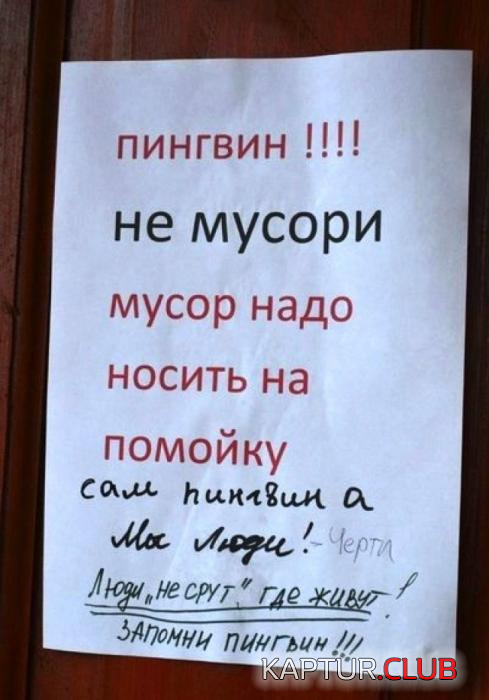 пингвин !!!!
не мусори
мусор надо
носить на
помойку
сам пингвин а
Мы Люди! - Черти
Люди „не срут" где живут!
ЗАПОМНИ ПИНГВИН!!!
KAPTUR.CLUB